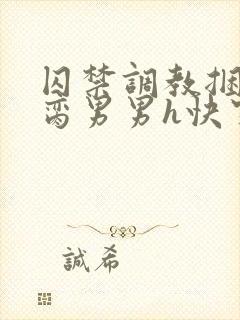 囚禁調教捆
脔男男h快
誠希